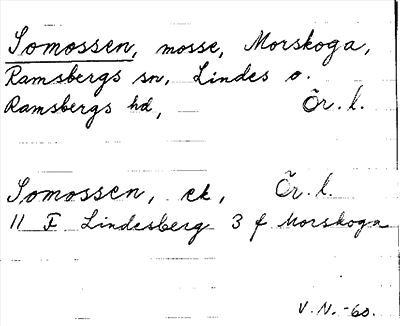 Somossen, mosse, Morskoga,
Ramsbergs sn, Lindes o.
Ramsbergs hd, Ör. l.
Somossen, ek, Ör. l.
11 F Lindesberg 3 f Morskoga
V. N. -60.